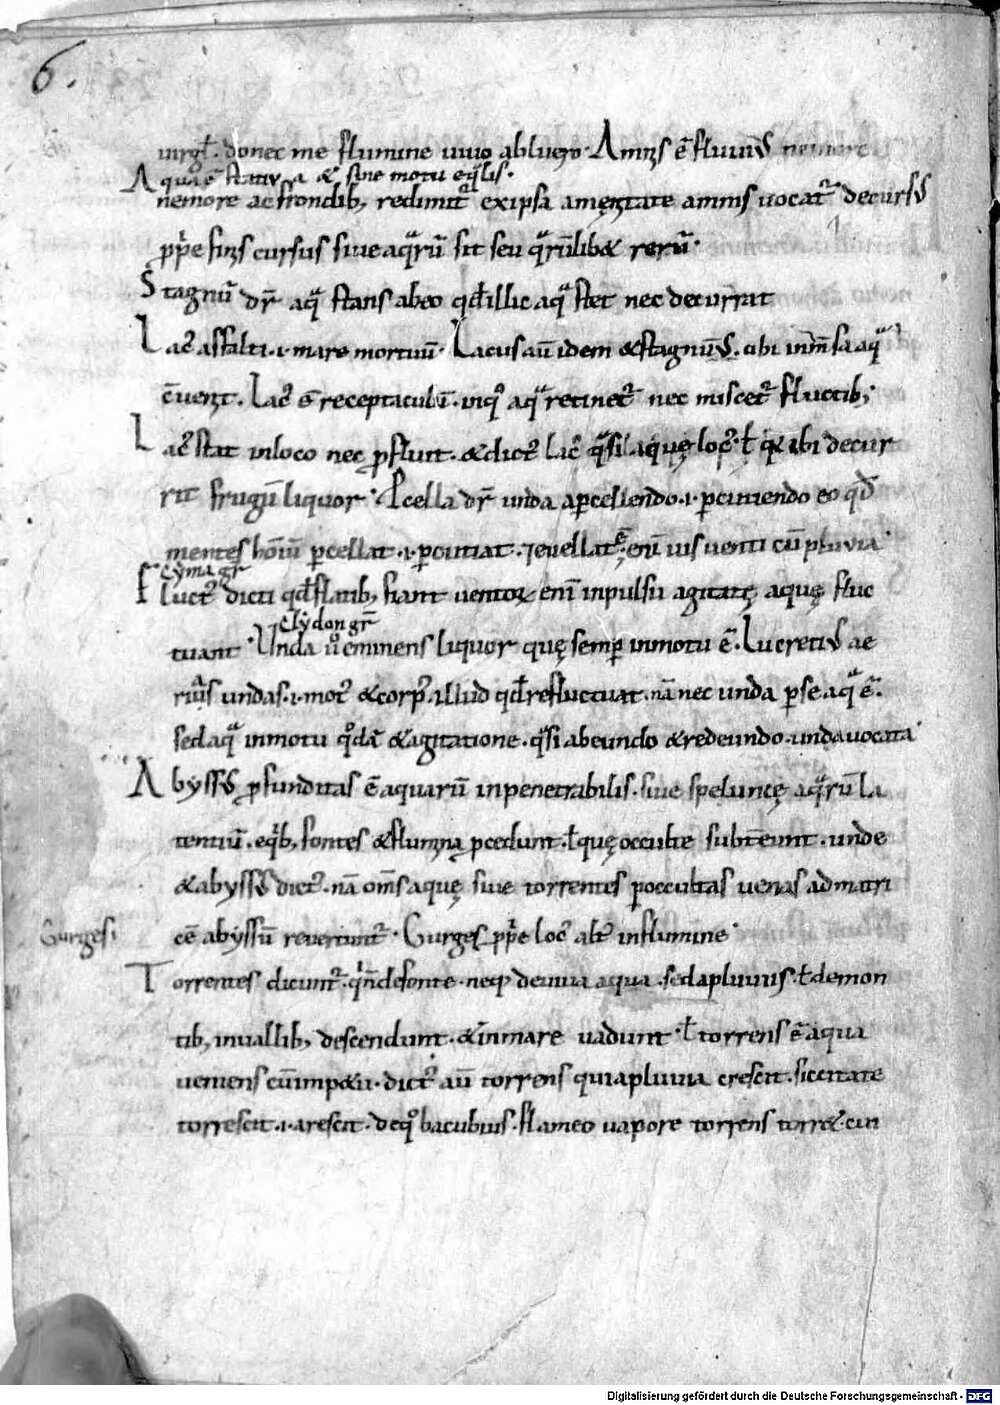 6.
uirgł. donec me flumine uiuo abluero. Amnis ē fluuiꝰ nemore
Aqua ē statiua & sine motu eq̄lis.
nemore ac frondib; redimit᷑ ex ipsa amęnitate amnis uocat᷑ decursꝰ
ꝓprie finis cursus siue aquarū sit seu quarūlib& rerū.
Stagnū dr̄ aqua stans ab eo qd̄ illic aqua stet nec decurrat
Lacꝰ asfalti .i. mare mortuū. Lacus aū idem & stagnū. ubi inm̄sa aqua
c̄uenit. Lacꝰ ē receptaculū. in quo aqua retinet᷑ nec miscet᷑ fluctib;
Lacꝰ stat in loco nec ꝓfluit. & dictꝰ lacꝰ quasi laquę locꝰ. ł quia ibi decur
rit frugū liquor. Pcella dr̄ unda a ꝑcellendo .i. ꝑcutiendo eo qd̄
mentes hoīum ꝑcellat .i. ꝑcutiat. ⁊ euellat. ē enī uis uenti cū pluuia
cyma gr̄
Fluctꝰ dicti qd̄ flatib; fiant uentoꝝ enī inpulsu agitatę aquę fluc
Clydon gr̄
tuant. Unda uo eminens liquor quę semꝑ in motu ē. Lucretiꝰ ae
riis undas .i. motꝰ & corpꝰ illud qd̄ refluctuat. nā nec unda ꝑ se aqua ē.
sed aqua in motu quodā & agitatione. quasi abeundo & redeundo unda uocata
Abyssꝰ ꝓfunditas ē aquarū inpenetrabilis. siue speluncę aquarū la
tentiū. e quib; fontes & flumina ꝓcedunt. ł quę occulte subt̄ eunt. unde
& abyssꝰ dictꝰ. nā om̄s aquę siue torrentes ꝑ occultas uenas ad matri
cē abyssū reuertunt᷑. Gurges ꝓprie locꝰ altꝰ in flumine
Gurges
Torrentes dicunt᷑. qn̄ de fonte. neq; de uiua aqua. sed a pluuiis. ł de mon
tib; in uallib; descendunt. & in mare uadunt. ł torrens ē aqua
ueniens cū imp&u. dictꝰ aū torrens quia pluuia crescit. siccitate
torrescit .i. arescit. de quo bacubius. flameo uapore torrens torr&. cui
Digitalisierung gefördert durch die Deutsche Forschungsgemeinschaft - DFG